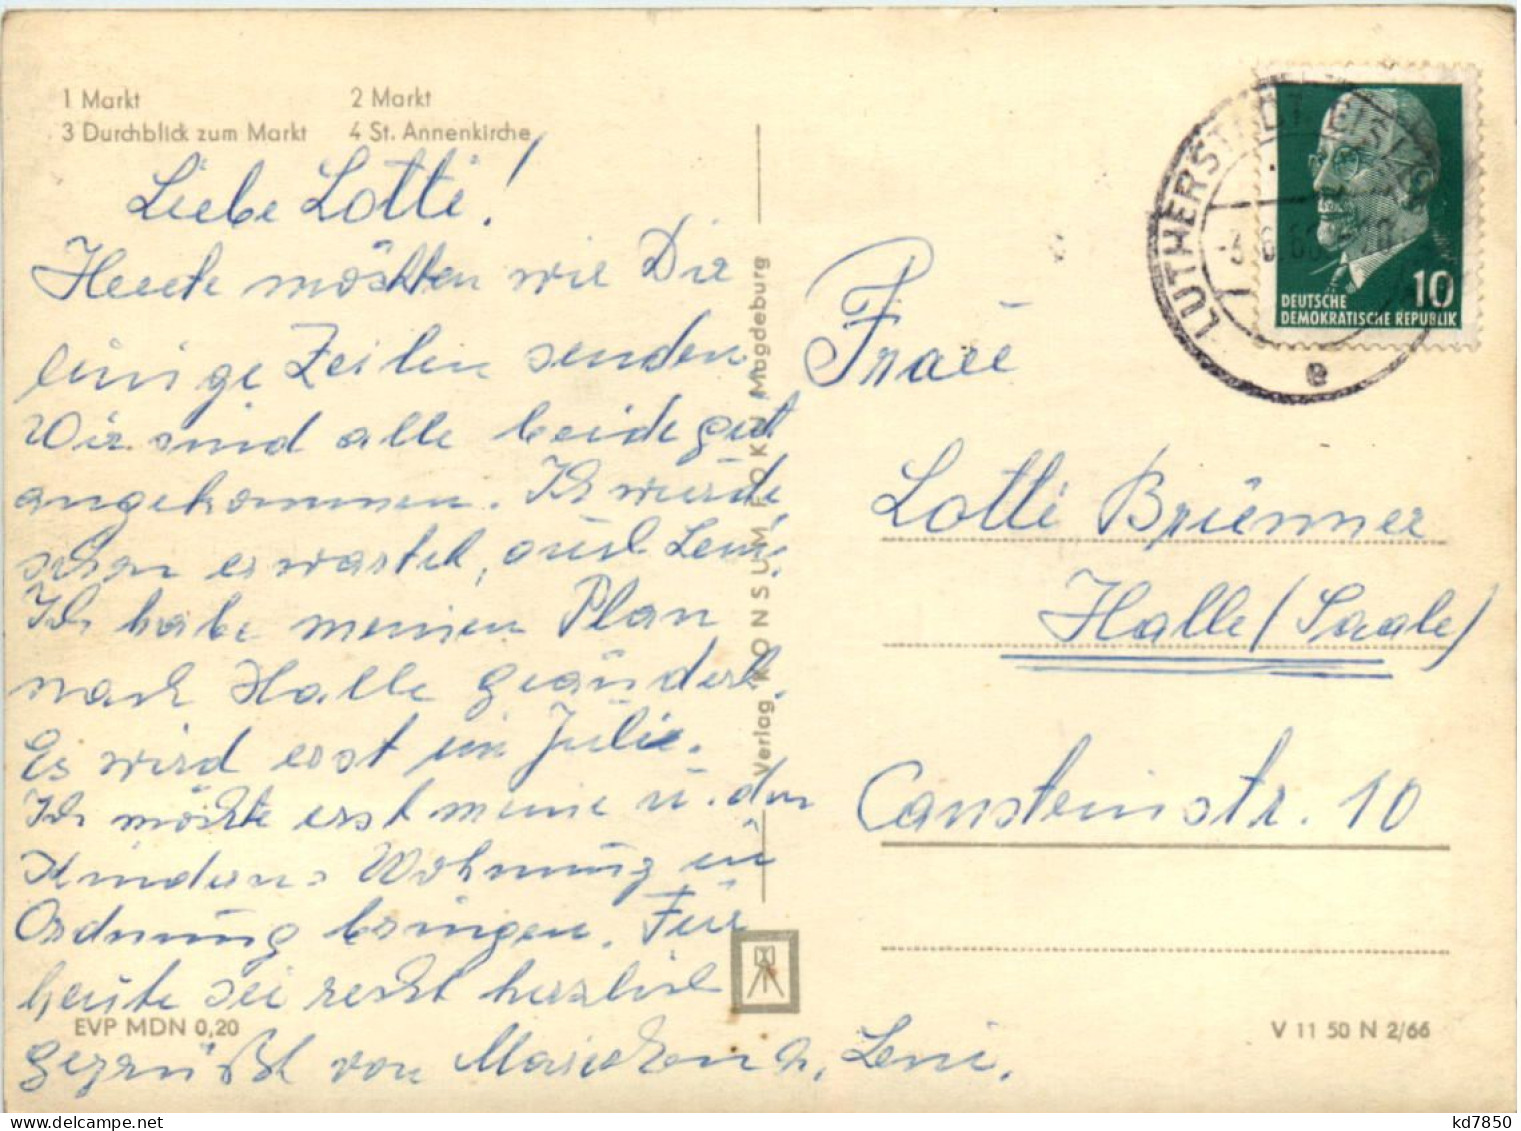 1 Markt 2 Markt
3 Durchblick zum Markt 4 St. Annenkirche
Liebe Lotti!
Heute möchten wir Dir
einige Zeilen senden.
Wir sind alle beide gut
angekommen. Ich wurde
schon erwartet, auch Leni.
Ich habe meinen Plan
nach Halle geändert.
Es wird erst im Julie.
Ich möchte erst meine u. den
Kindern. Wohnung in
Ordnung bringen. Für
heute sei recht herzlich
gegrüßt von u. Leni.
EVP MDN 0,20
Verlag KONSUM FOKO Magdeburg
LUTHERSTADT EISLEBEN
e
10
DEUTSCHE
DEMOKRATISCHE REPUBLIK
Frau
Lotti Brünner
Halle/Saale/
Cansteinstr. 10
V 11 50 N 2/66
delcampe.net
kd7850